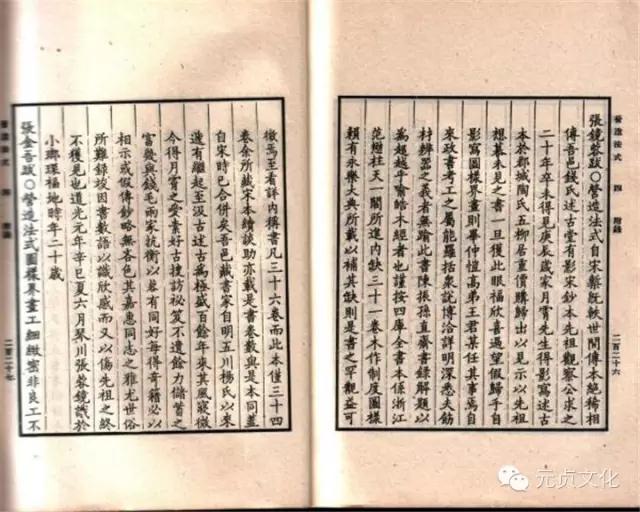 營造法式 四 附錄
張鏡蓉跋○營造法式自宋槧既軼世間傳本絕稀相
傳吾邑錢氏述古堂有影宋鈔本先祖觀察公求之
二十年卒未得見庚辰歲家月霄先生得影寫述古
本於郡城陶氏五柳居重價購歸出以見示以先祖
想慕未見之書一旦獲此眼福欣喜過望假歸手自
影寫圖樣界畫則畢仲愷高弟王君某任其事焉自
來政書考工之屬能羅括衆說博洽詳明深悉夫飭
材辨器之義者無踰此書陳振孫直齋書錄解題以
為超越乎喻皓木經者也謹按四庫全書本係浙江
范懋柱天一閣所進內缺三十一卷木作制度圖樣
賴有永樂大典所載以補其缺則是書之罕觀益可
二百二十六
徵焉至看詳內稱書凡三十六卷而此本僅三十四
卷余所藏宋本續談助亦載是書卷數與是本同蓋
自宋時已合併矣吾邑藏書家自明五川楊氏以來
遞有繼起至汲古述古為極盛百餘年來其風寢微
今得月霄之愛素好古搜訪秘笈不遺餘力儲蓄之
富幾與錢毛兩家抗衡以蓉有同好每得奇籍必以
相示或假傳鈔略無吝色其嘉惠同志之雅尤世俗
所難錄竣因書數語以識欣感而又以傷先祖之終
不獲見也道光元年辛巳夏六月琴川張蓉鏡識於
小瑯環福地時年二十歲
張金吾跋○營造法式圖樣界畫工細緻密非良工不
營造法式 四 附錄
二百二十七
元贞文化